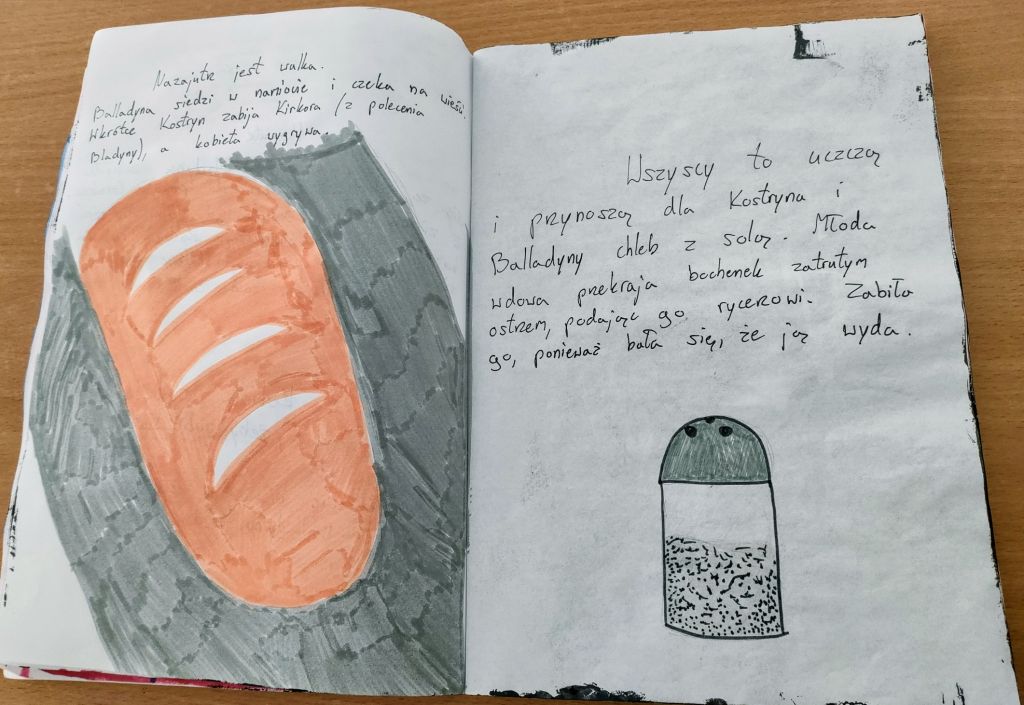 Nazajutrz jest walka.
Balladyna siedzi w namiocie i czeka na wieści.
Wkrótce Kostryn zabija Kirkora (z polecenia
Bladyny), a kobieta wygrywa.
Wszyscy to uczczą
i przynoszą dla Kostryna i
Balladyny chleb z solą. Młoda
wdowa przekraja bochenek zatrutym
ostrzem, podając go rycerowi. Zabiła
go, ponieważ bała się, że ją wyda.